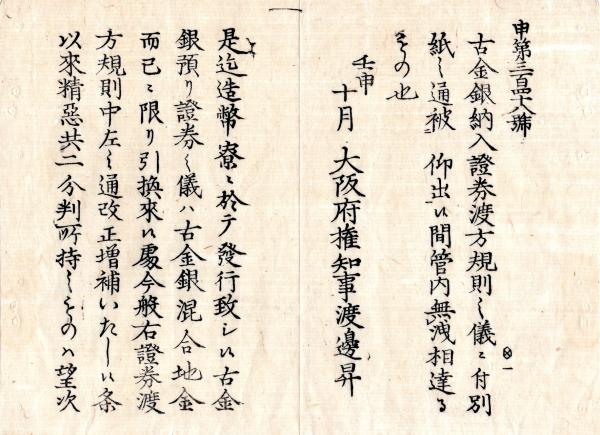 申第三百四十八號
古金銀納入證券渡方規則之儀ニ付別
紙之通被 仰出候間管内無洩相達る
もの也
壬申
十月 大阪府権知事渡邊昇
是迄造幣寮ニ於テ發行致シ候古金
銀預り證券之儀ハ古金銀混合地金
而已ニ限り引換來候處今般右證券渡
方規則中左之通改正増補いたし候条
以來精惡共二分判所持之ものハ望次